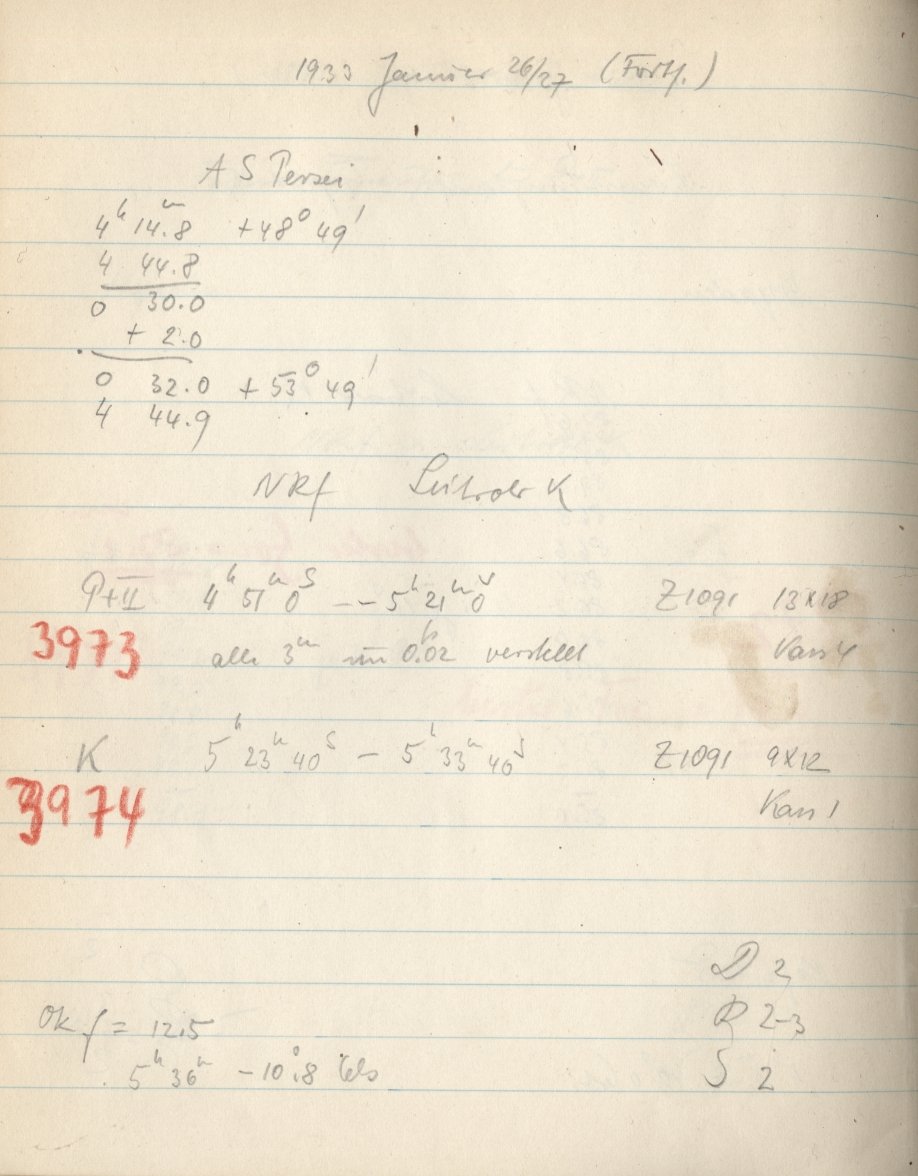 1933 Januar 26/27 (Fortf.)
AS Persei
4h 14m.8 +48° 49'
4 44.8
0 30.0
+ 2.0
0 32.0 + 53° 49'
4 44.9
NRf K
P+II 4h 51m 0s -- 5h 21m 0s Z1091 13x18
3973 alle 3m um 0.02 verstellt Kass 4
K 5h 23m 40s - 5h 33m 40s Z1091 9x12
3974 Kass 1
D 2
Ok f = 12.5 R 2-3
5h 36m -10°.8 Cels S 2